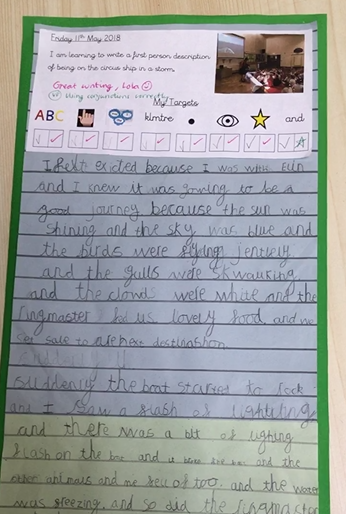 Friday 11th May 2018
I am learning to write a first person description
of being on the circus ship in a storm.
Great writing, Lola
Using conjunctions correctly
My Targets
ABC kimtre and
I felt exicted because I was with fun
and I knew it was gowing to be a
good journey because the sun was
Shining and the sky was blue and
the birds were flying jentlely
and the gulls were skwauking
and the clouds were white and the
ringmaster fed us lovely food and we
set sale to are next destinashon
suddenly the boat started to rock
and I saw a flash of lightning
and there was a bit of lighing
flash on the boat and it and the
other animals and me fell of too. and the water
was freezing. and so did the ringmaster